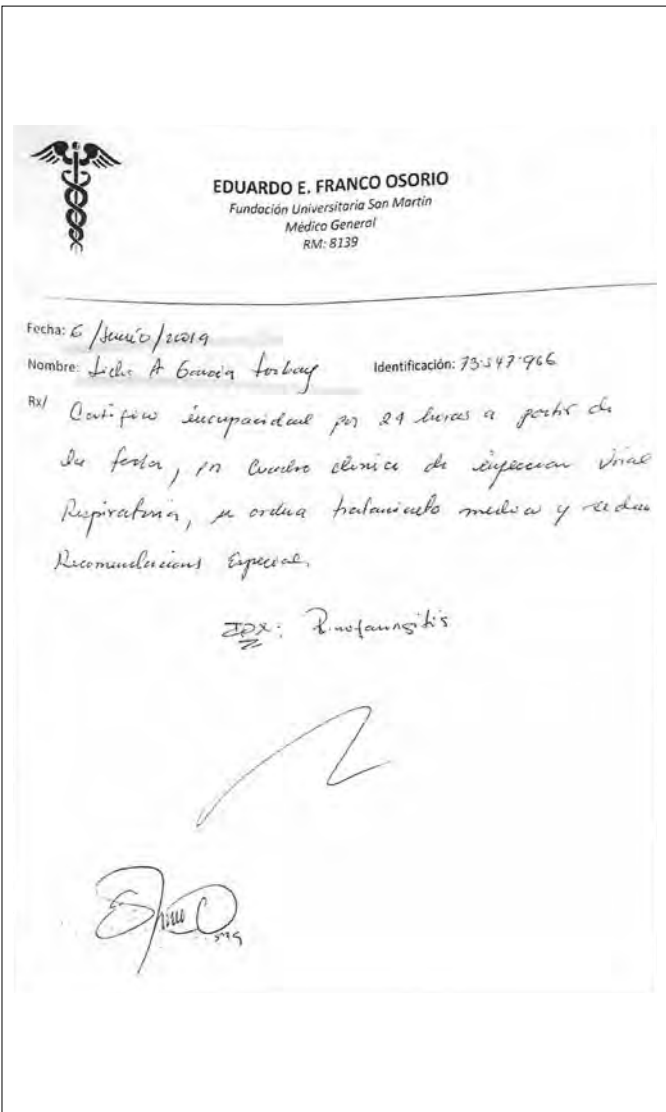 EDUARDO E. FRANCO OSORIO
Fundación Universitaria San Martín
Médico General
RM: 8139
Fecha: 6 /Junio/2019
Nombre: A García Identificación: 73.547.966
Rx/ Certifico incapacidad por 24 horas a partir de
la fecha, por Cuadro clinico de infeccion Viral
Respiratoria, se ordena tratamiento medico y se dan
Recomendaciones Especial.
IDX: Rinofaringitis